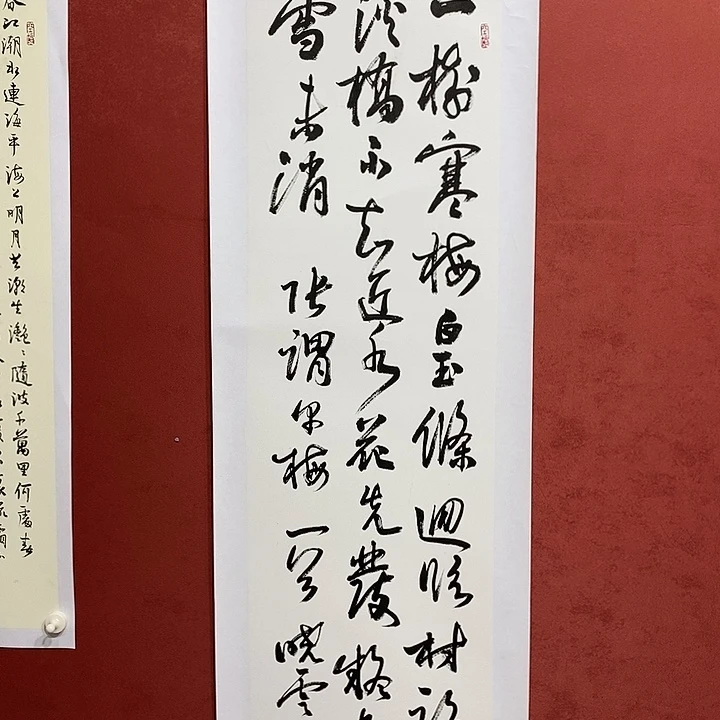 一樹寒梅白玉條迴臨村路
溪橋不知近水花先發疑
雪未消 張謂早梅一首 曉雲
春江潮水連海平海上明月共潮生灩〻隨波千萬里何處春